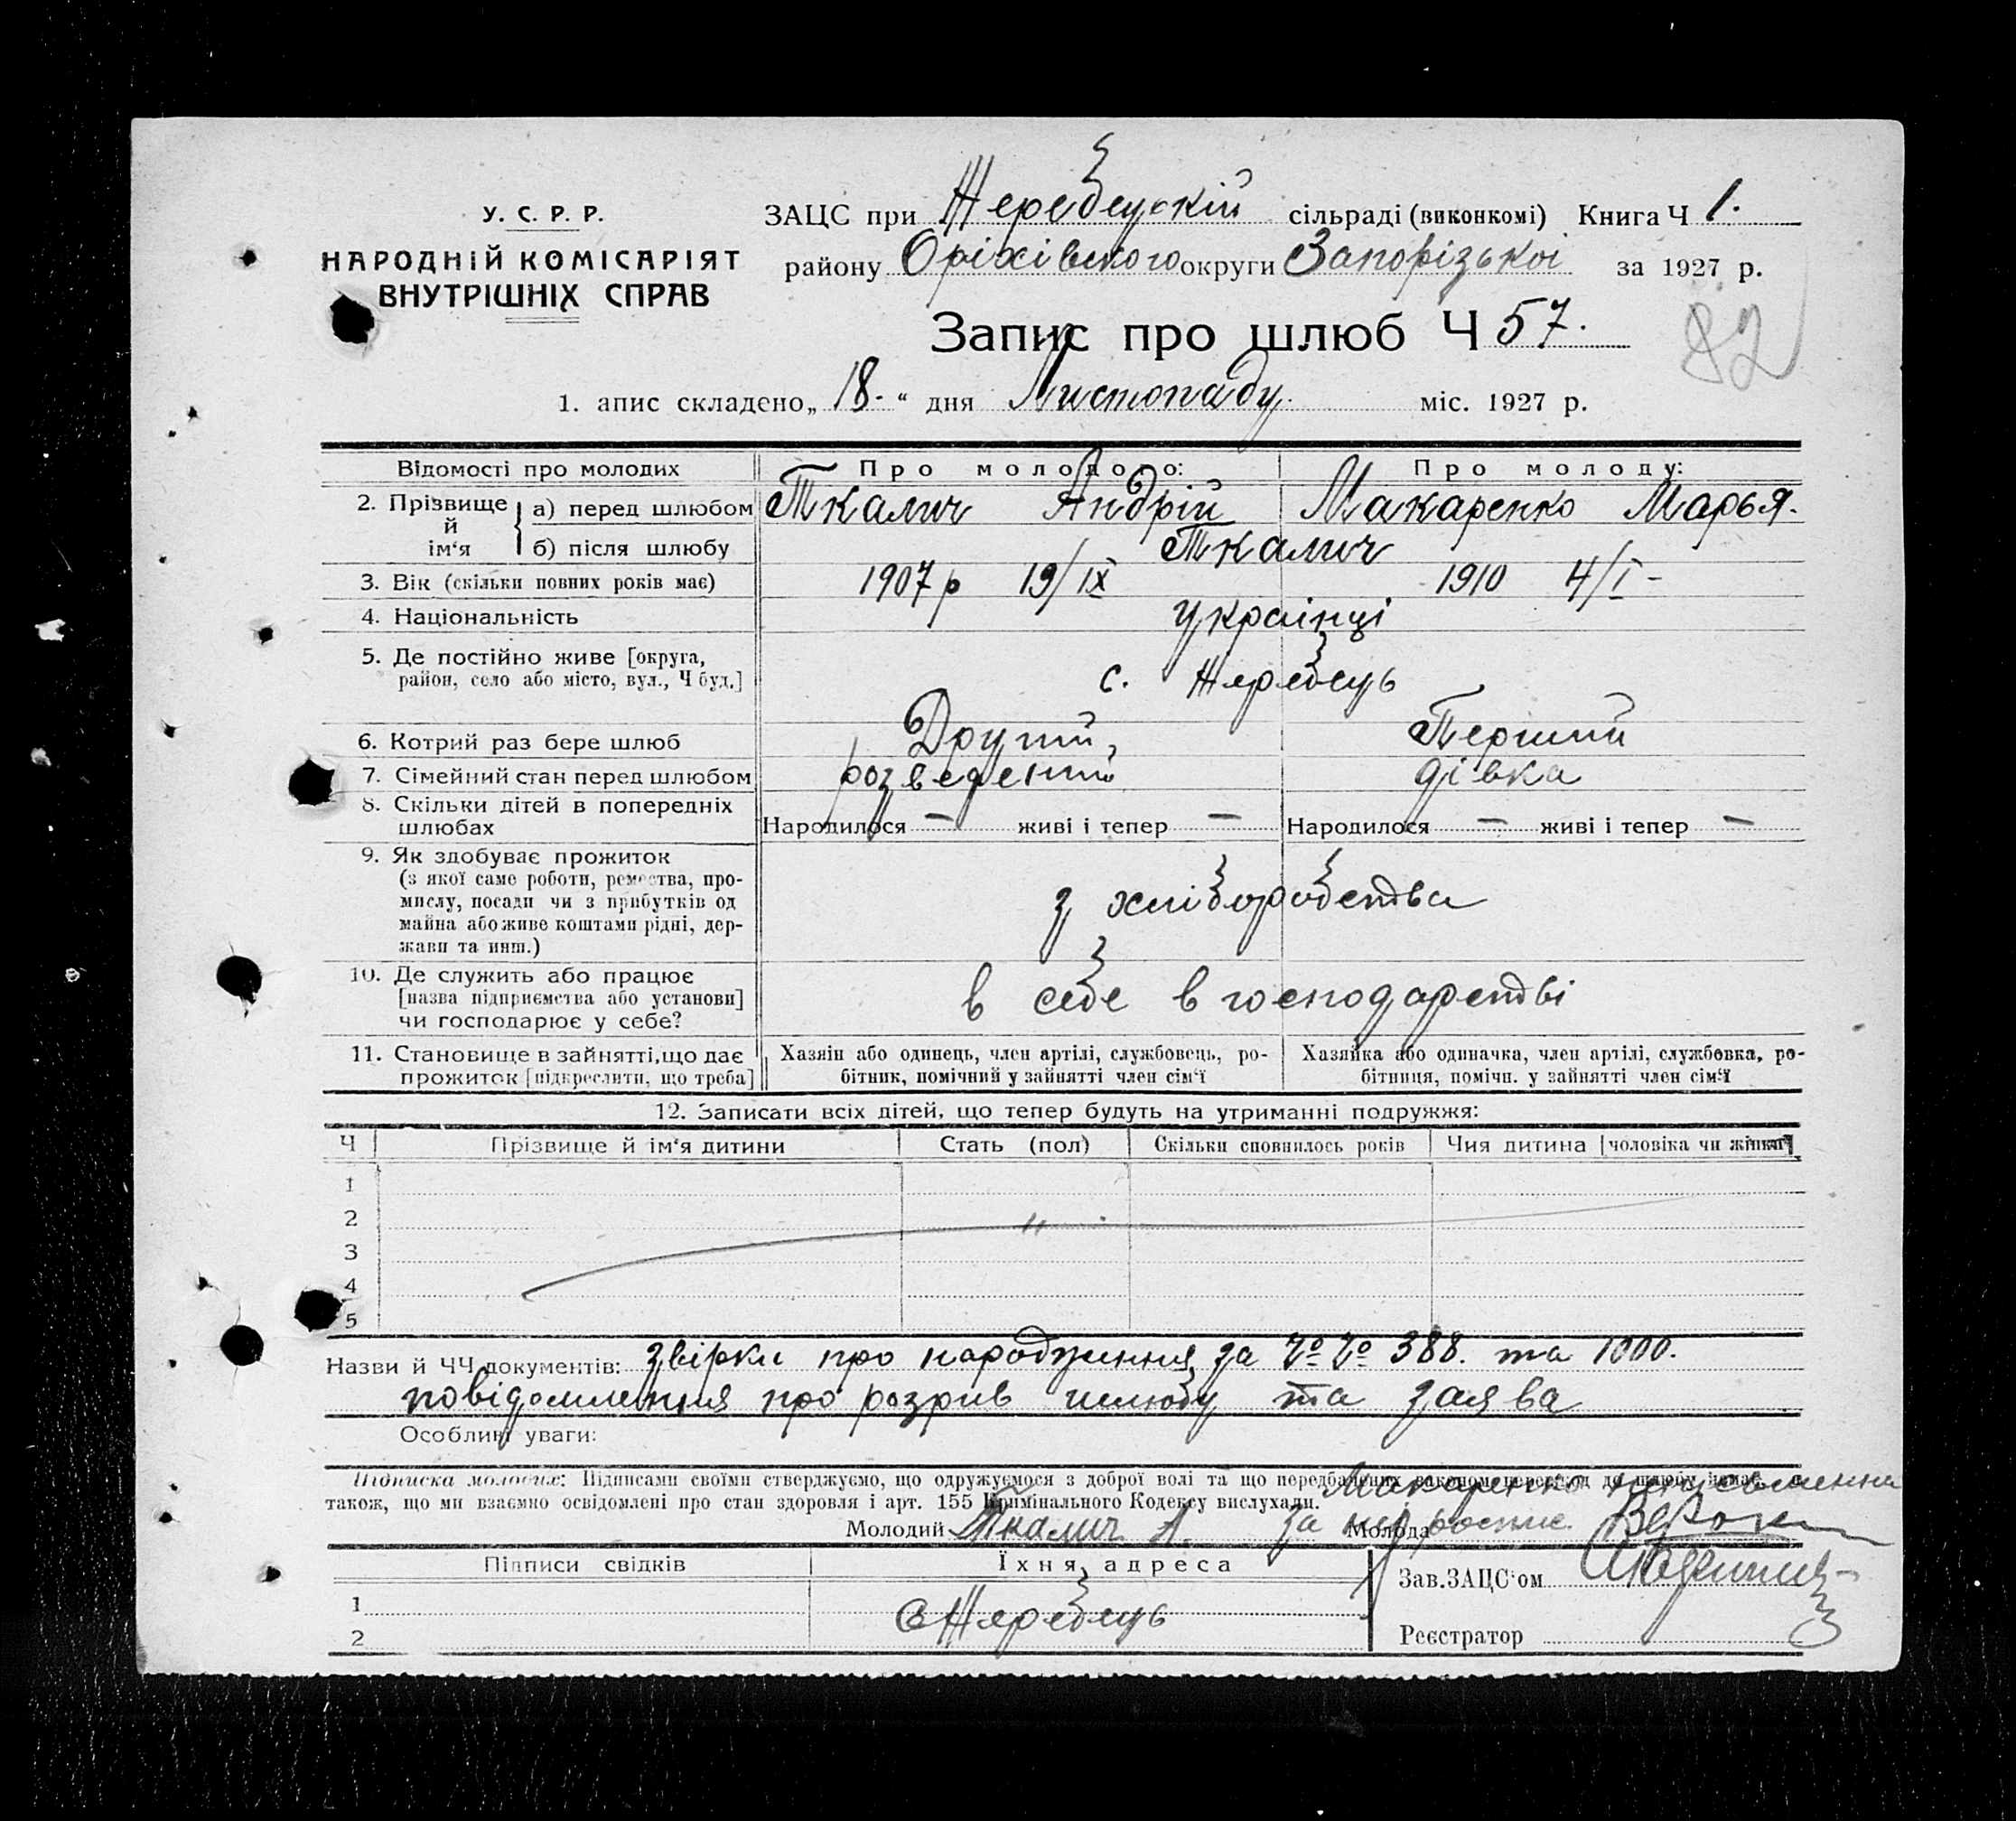 У. С. Р. Р.
НАРОДНІЙ КОМІСАРІЯТ
ВНУТРІШНІХ СПРАВ
ЗАЦС при Жеребецькій сільраді (виконкомі) Книга Ч 1.
району Оріхівського округи Запорізької за 1927 р.
Запис про шлюб Ч 57.
82
1. апис складено „ 18. “ дня Листопаду міс. 1927 р.
Відомості про молодих Про молодого: Про молоду:
2. Прізвище й ім‘я а) перед шлюбом Ткалич Андрій Макаренко Марья.
б) після шлюбу Ткалич
3. Вік (скільки повних років має) 1907 р 19/IX 1910 4/I -
4. Національність українці
5. Де постійно живе [округа,
район, село або місто, вул., Ч буд.] с. Жеребець
6. Котрий раз бере шлюб Другий, Перший
7. Сімейний стан перед шлюбом розведений дівка
8. Скільки дітей в попередніх
шлюбах Народилося — живі і тепер — Народилося — живі і тепер —
9. Як здобуває прожиток
(з якої саме роботи, ремества, про-
мислу, посади чи з прибутків од
майна або живе коштами рідні, дер-
жави та инш.) з хліборобства
10. Де служить або працює
[назва підприємства або установи]
чи господарює у себе? в себе в господарстві
11. Становище в зайнятті, що дає
прожиток [підкреслити, що треба]
Хазяїн або одинець, член артілі, службовець, ро-
бітник, помічний у зайнятті член сім‘ї
Хазяйка або одиначка, член артілі, службовка, ро-
бітниця, помічн. у зайнятті член сім‘ї
12. Записати всіх дітей, що тепер будуть на утриманні подружжя:
Ч Прізвище й ім‘я дитини Стать (пол) Скільки сповнилось років Чия дитина [чоловіка чи жінки]
1
2
3
4
5
Назви й ЧЧ документів: звірки про народження за №№ 388. та 1000.
повідомлення про розрив шлюбу та заява
Особливі уваги:
Підписка молодих: Підписами своїми стверджуємо, що одружуємося з доброї волі та що передбачених законом перешкод до шлюбу немає, а
також, що ми взаємно освідомлені про стан здоровля і арт. 155 Кримінального Кодексу вислухали.
Макаренко неписьменна
Молодий Ткалич А. Молода за неї роспис.
Підписи свідків Їхня адреса
Зав. ЗАЦС‘ом
1
с Жеребець
2
Реєстратор